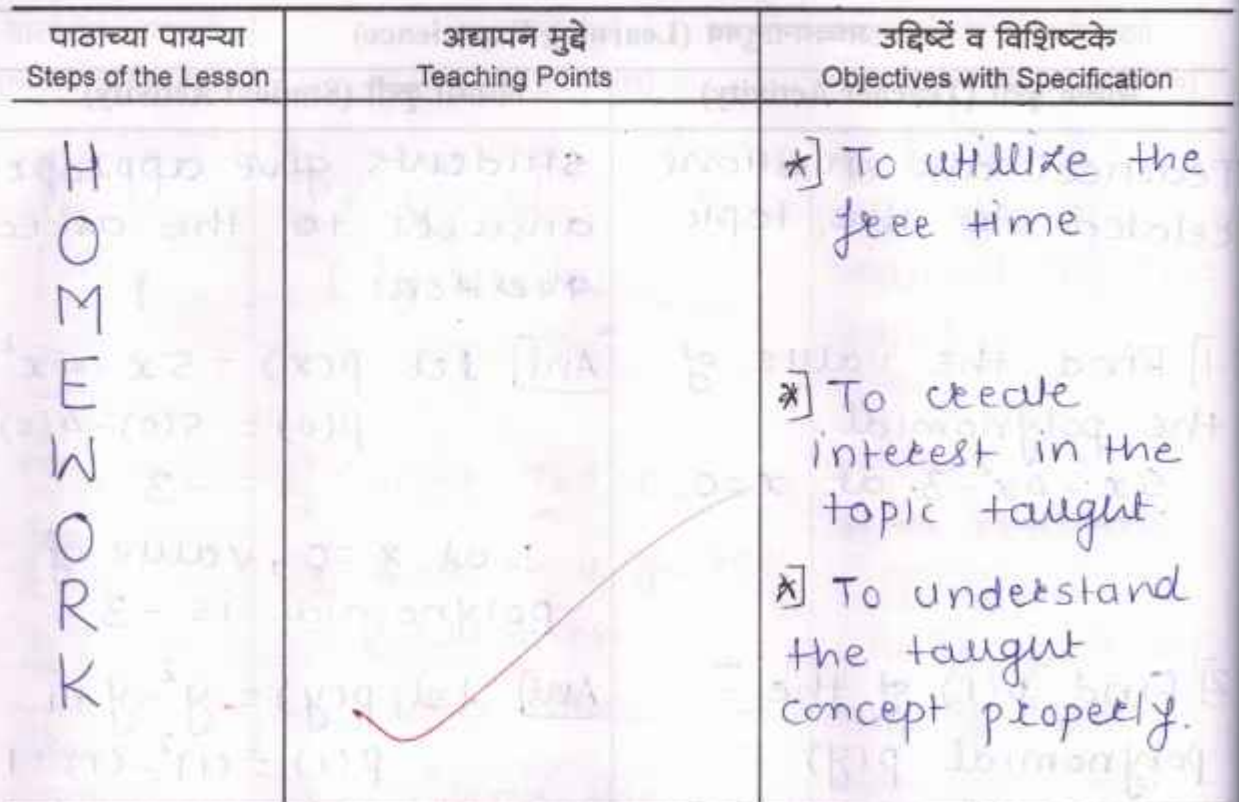 पाठाच्या पायऱ्या
Steps of the Lesson
अद्यापन मुद्दे
Teaching Points
उद्दिष्टें व विशिष्टके
Objectives with Specification
H
O
M
E
W
O
R
K
*] To utillize the
free time
*] To create
interest in the
topic taught.
*] To understand
the taught
concept properly.